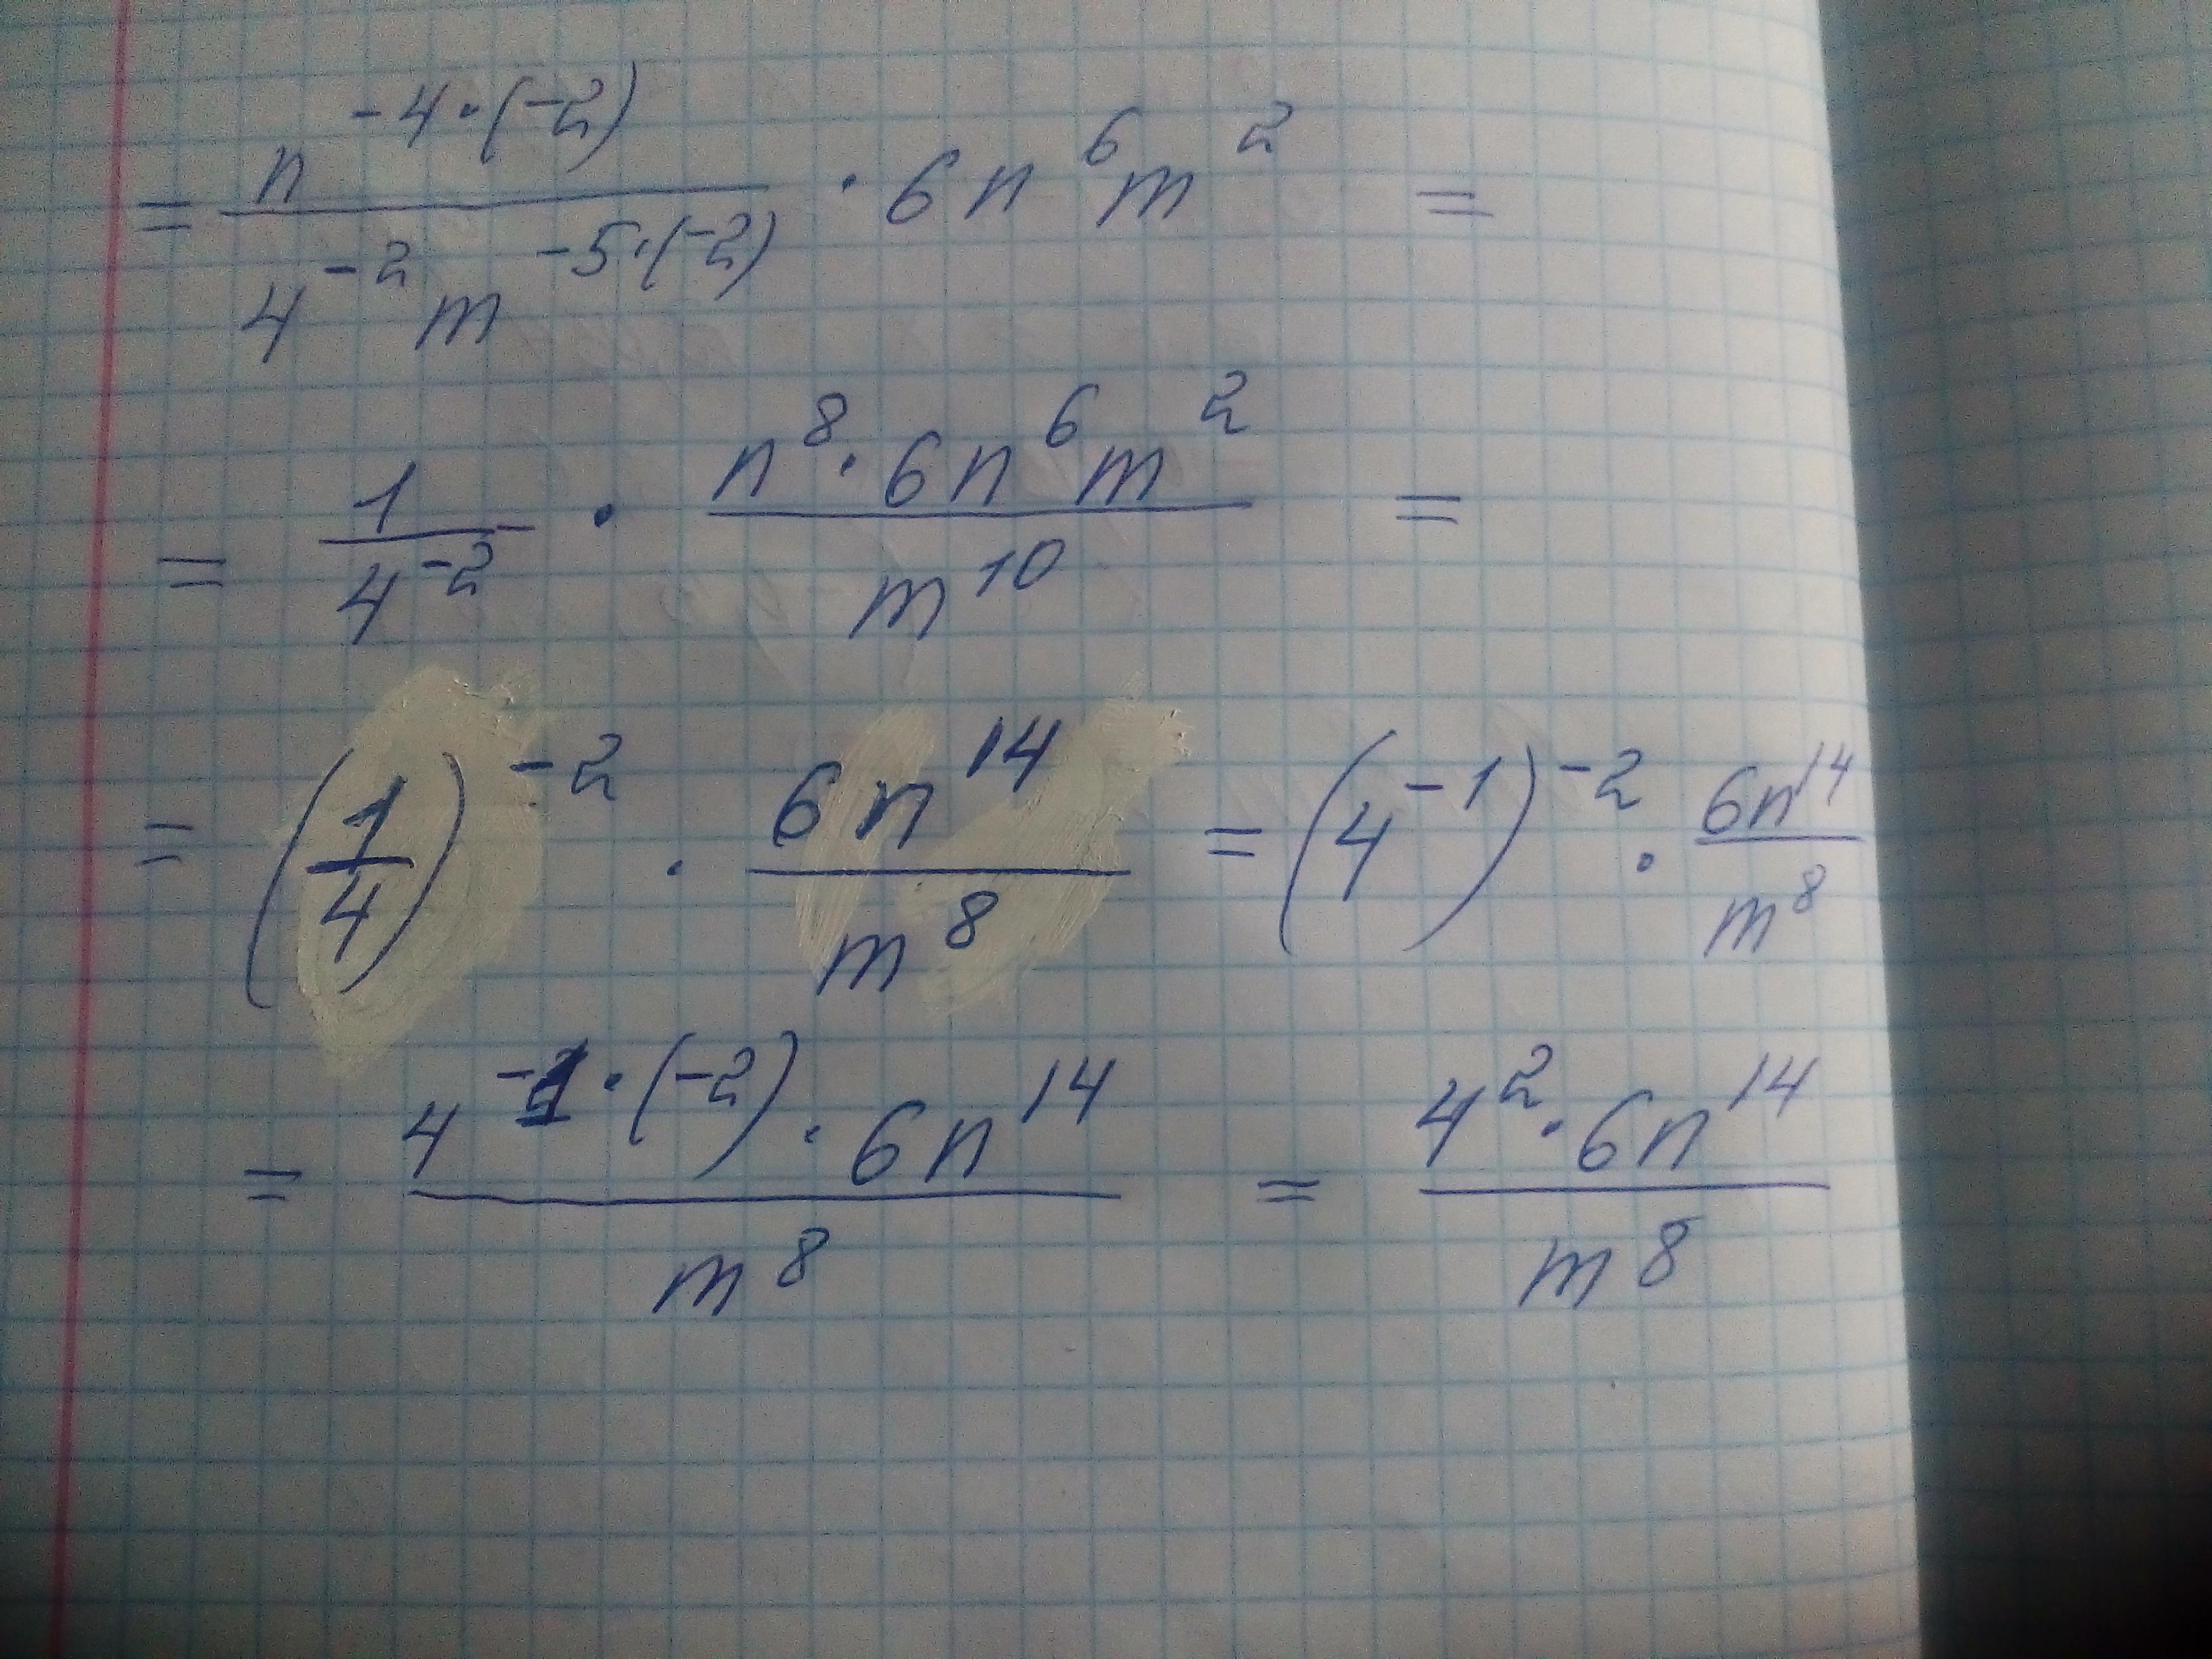 = n^{-4·(-2)} / 4^{-2} m^{-5·(-2)} · 6n^6 m^2 =
= 1 / 4^{-2} · n^8 · 6n^6 m^2 / m^{10} =
= (1/4)^{-2} · 6n^{14} / m^8 = (4^{-1})^{-2} · 6n^{14} / m^8
= 4^{-1·(-2)} · 6n^{14} / m^8 = 4^2 · 6n^{14} / m^8